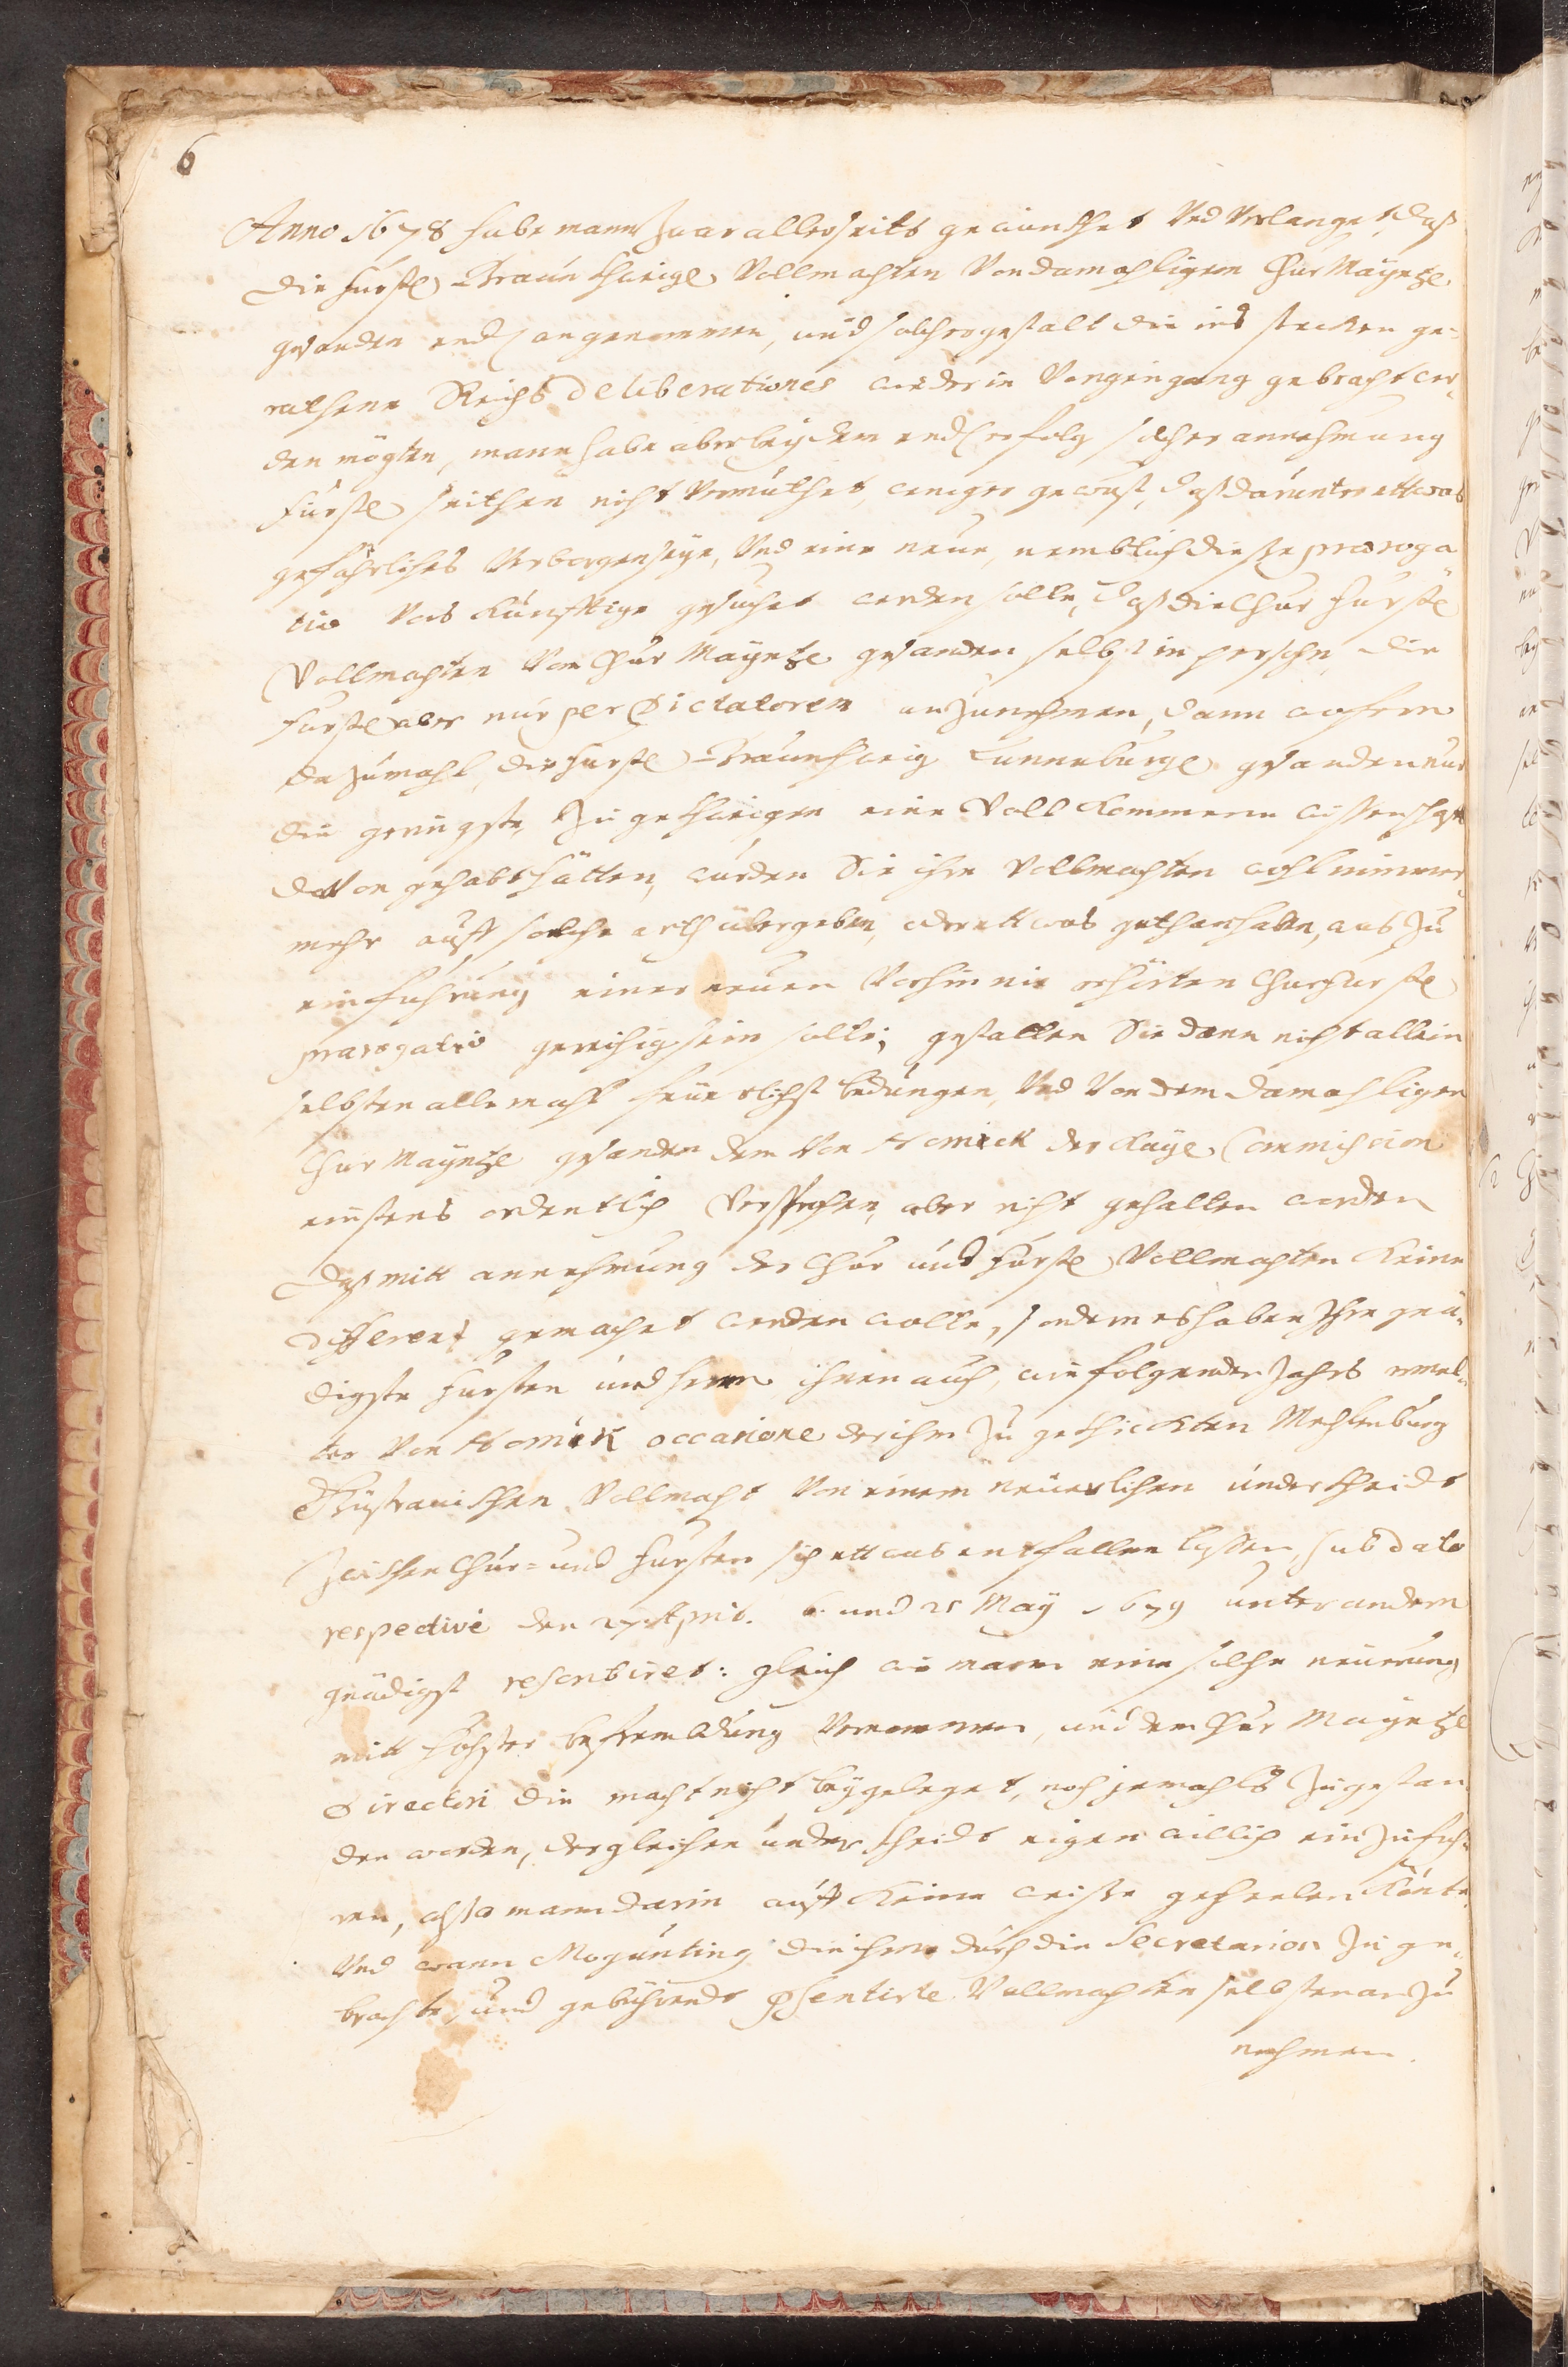 6
Anno 1678 habe mann zwar allerseits gewünschet Und Verlanget, daß
die fürstl. Braunschweigl. Vollmachten Von damahligem Chur Mayntzl.
gesanden endl. angenommen, und solchergestalt die ins stecken ge-
rathene Reichs Deliberationes wieder in Vorigen gang gebracht wer-
den mögten, mann habe aber bey dem endl. erfolg solcher annehmung
Fürstl. seithen nicht Vermuthet, weniger gewust, daß darunter ettwas
gefährliches Verborgen seye, Und eine neue, nemblich diese praeroga
tiv Vors Künfftige gesuchet werden solle, daß die Chur Fürstl.
Vollmachten Von Chur Mayntzl. gesanden selbst in persohn, die
Fürstl. aber nur per Dictatorem anzunehmen, dann wofern
dazumahl, die Fürstl. Braunschweig Luneburgl. gesanden nur
die geringste, zu geschweigen eine Vollkommene wissenschafft
davon gehabt hätten, würden Sie ihre Vollmachten wohl nimmer-
mehr auff solche arth übergeben, oder ettwas gethan haben, was zu
einführung einer neuen Vorhin nie erhörten Churfürstl.
praerogativ gereichig sein solte; gestalten Sie dann nicht allein
selbsten allemahl feüerlichst bedungen, Und Von dem damahligen
Chur Mayntzl. gesanden dem Von Hornick der Kayl. Commission
einstens ordentlich Versprochen, aber nicht gehalten worden
daß mitt annehmung der Chur und Fürstl. Vollmachten keine
different gemachet werden wolle, sondern es haben Ihre gnä-
digste Fürsten und herrn ihnen auch, wie folgendes Jahrs ermel-
ter Von Hornick occasione der ihm zugeschickten Mechlenburg
Güstrauischen Vollmacht Von einem neuerlichen underscheidt
zwischen Chur- und Fürsten sich ettwas entfallen lassen, sub dato
respective den 27. April. 6. und 21 May 1679 unter andern
gnädigst rescribiret: gleich wie mann eine solche neuerung
mitt höchster befrembdung Vernommen, und dem Chur Mayntzl.
Directori die macht nicht beygeleget, noch jemahls zugestan
den worden, dergleichen underscheidt eigenwillich einzufüh-
ren, also mann darin auff keine weise gehelen könte
Und wann Moguntinus die ihm durch die Secretarios zu ge-
brachte, und gebührendt praesentirte Vollmachten selbsten an zu
nehmen.